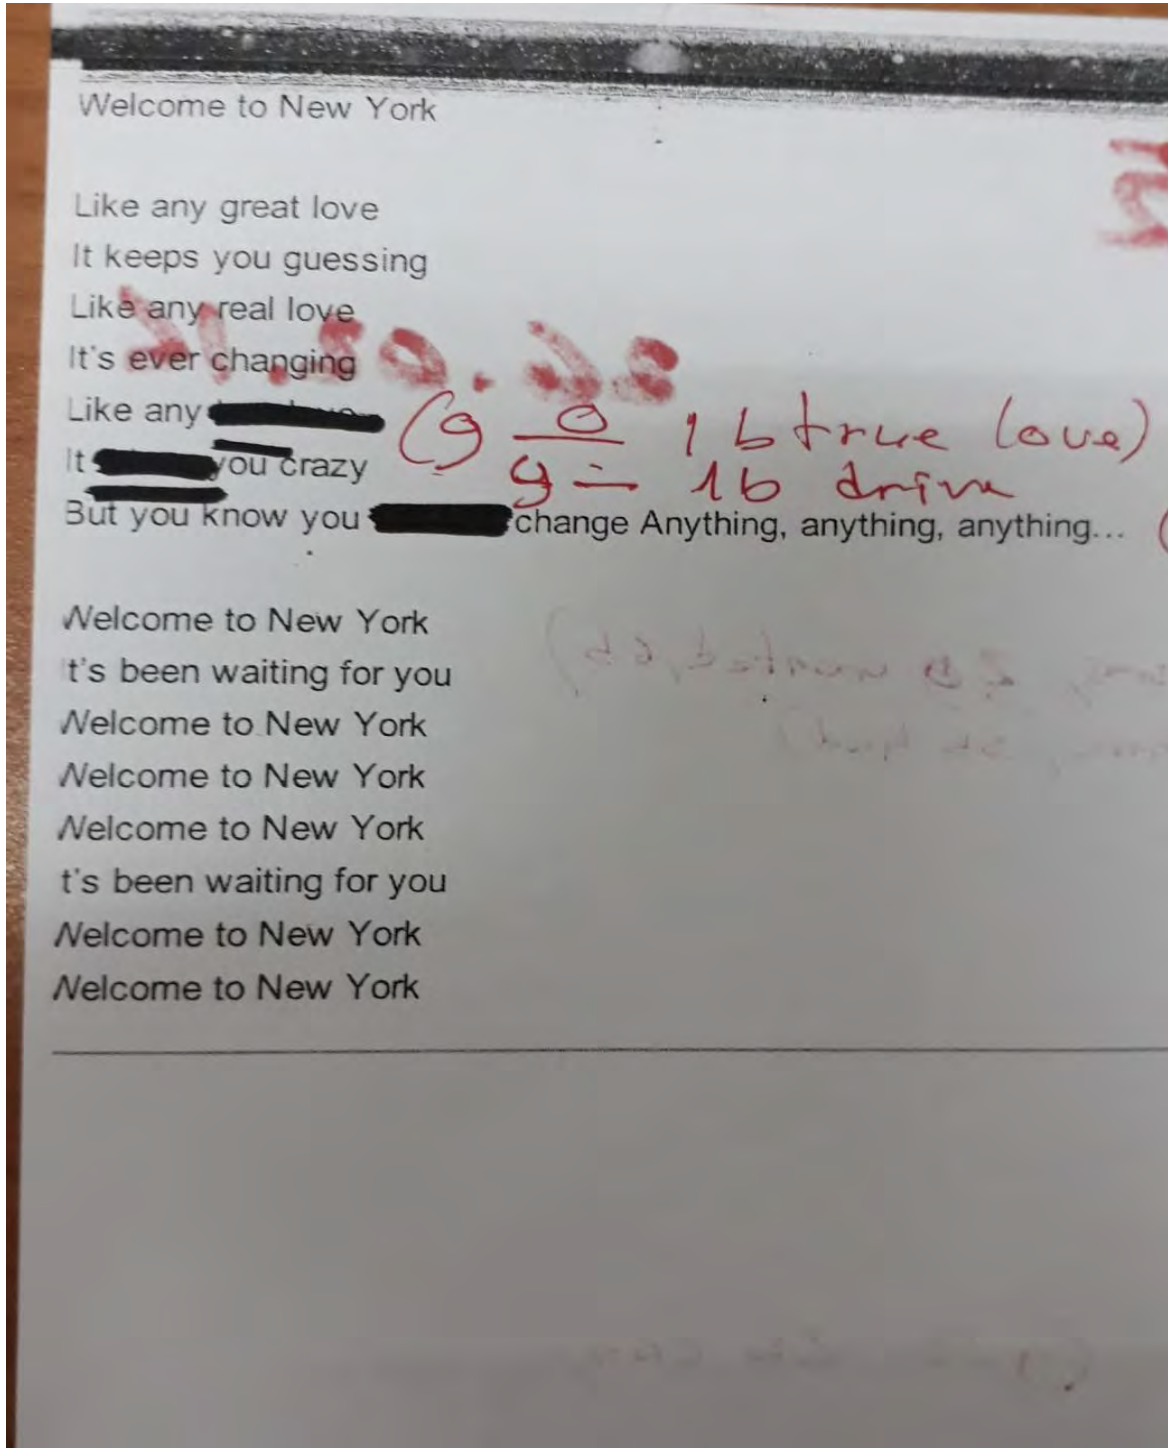 Welcome to New York
Like any great love
It keeps you guessing
Like any real love
It's ever changing
Like any
(9 0 1 b true love)
It you crazy
9 = 1b drive
But you know you change Anything, anything, anything...
Welcome to New York
t's been waiting for you
Welcome to New York
Welcome to New York
Welcome to New York
t's been waiting for you
Welcome to New York
Welcome to New York